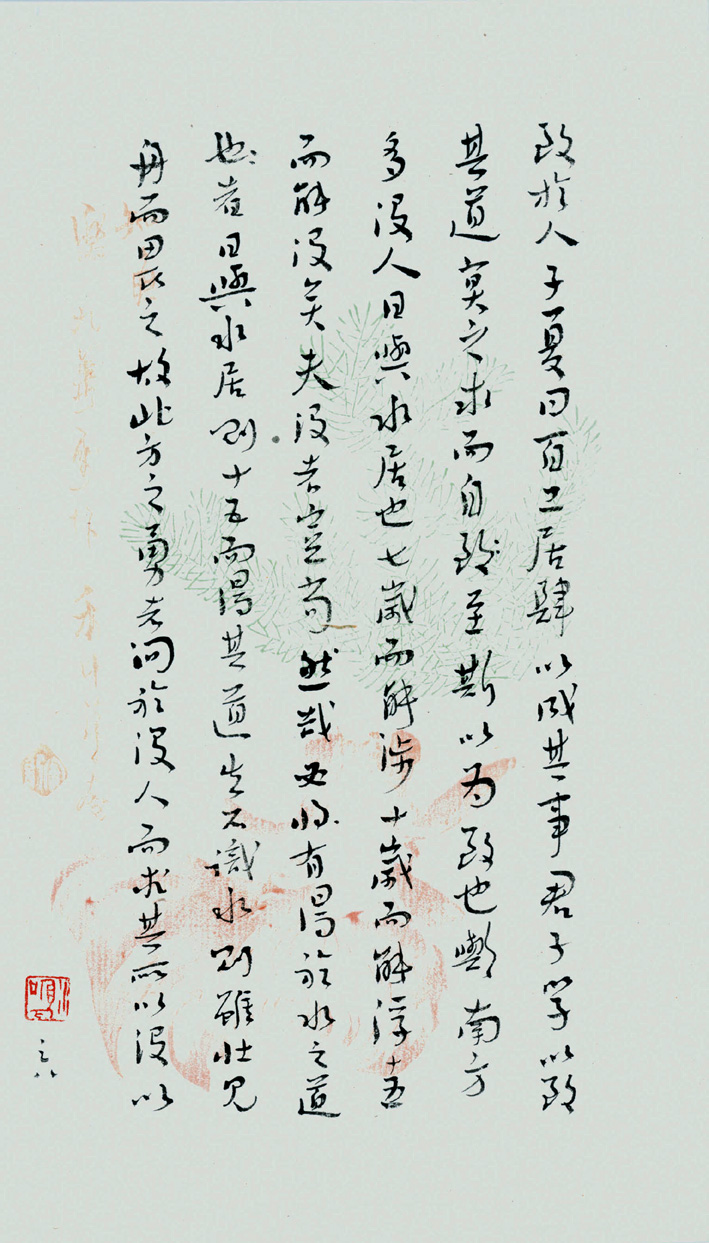 致於人子夏曰百工居肆以成其事君子學以致
其道莫之求而自致至斯以為致也歟南方
多沒人日與水居也七歲而能涉十歲而能浮十五
而能沒矣夫沒者豈苟然哉必將有得於水之道
也者日與水居則十五而得其道生不識水則雖壯見
舟而畏之故北方之勇者問於沒人而求其所以沒以